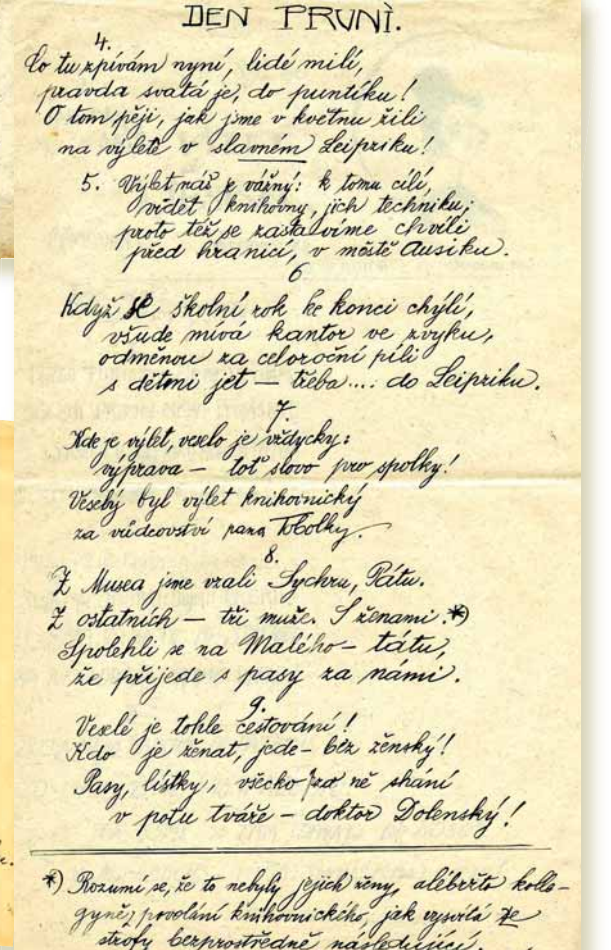 DEN PRVNÌ.
4.
Co tu zpívám nyní, lidé milí,
pravda svatá je, do puntíku!
O tom pěji, jak jsme v květnu žili
na výletě v slavném Leipziku!
5. Výlet náš je vážný: k tomu cílí,
vidět knihovny, jich techniku;
proto též se zastavíme chvíli
před hranicí, v městě Ausiku.
6
Když se školní rok ke konci chýlí,
všude mívá kantor ve zvyku,
odměnou za celoroční píli
s dětmi jet — třeba.... do Leipziku.
7.
Kde je výlet, veselo je vždycky:
výprava — toť slovo pro spolky!
Veselý byl výlet knihovnický
za vůdcovství pana Tobolky.
8.
Z Musea jsme vzali Sychru, Pátu.
Z ostatních — tři muže. S ženami.*)
Spolehli se na Malého — tátu,
že přijede s pasy za námi.
9.
Veselé je tohle cestování!
Kdo je ženat, jede — bez ženský!
Pasy, lístky, všecko za ně shání
v potu tváře — doktor Dolenský!
*) Rozumí se, že to nebyly jejich ženy, alébržto kolle-
gyně, povolání knihovnického, jak vysvítá ze
strofy bezprostředně následující.